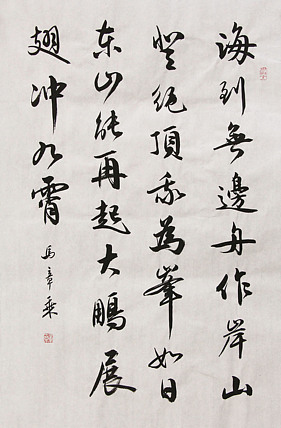 海到無邊舟作岸山
登絕頂我為峯如日
東山能再起大鵬展
翅冲九霄
馬章乘